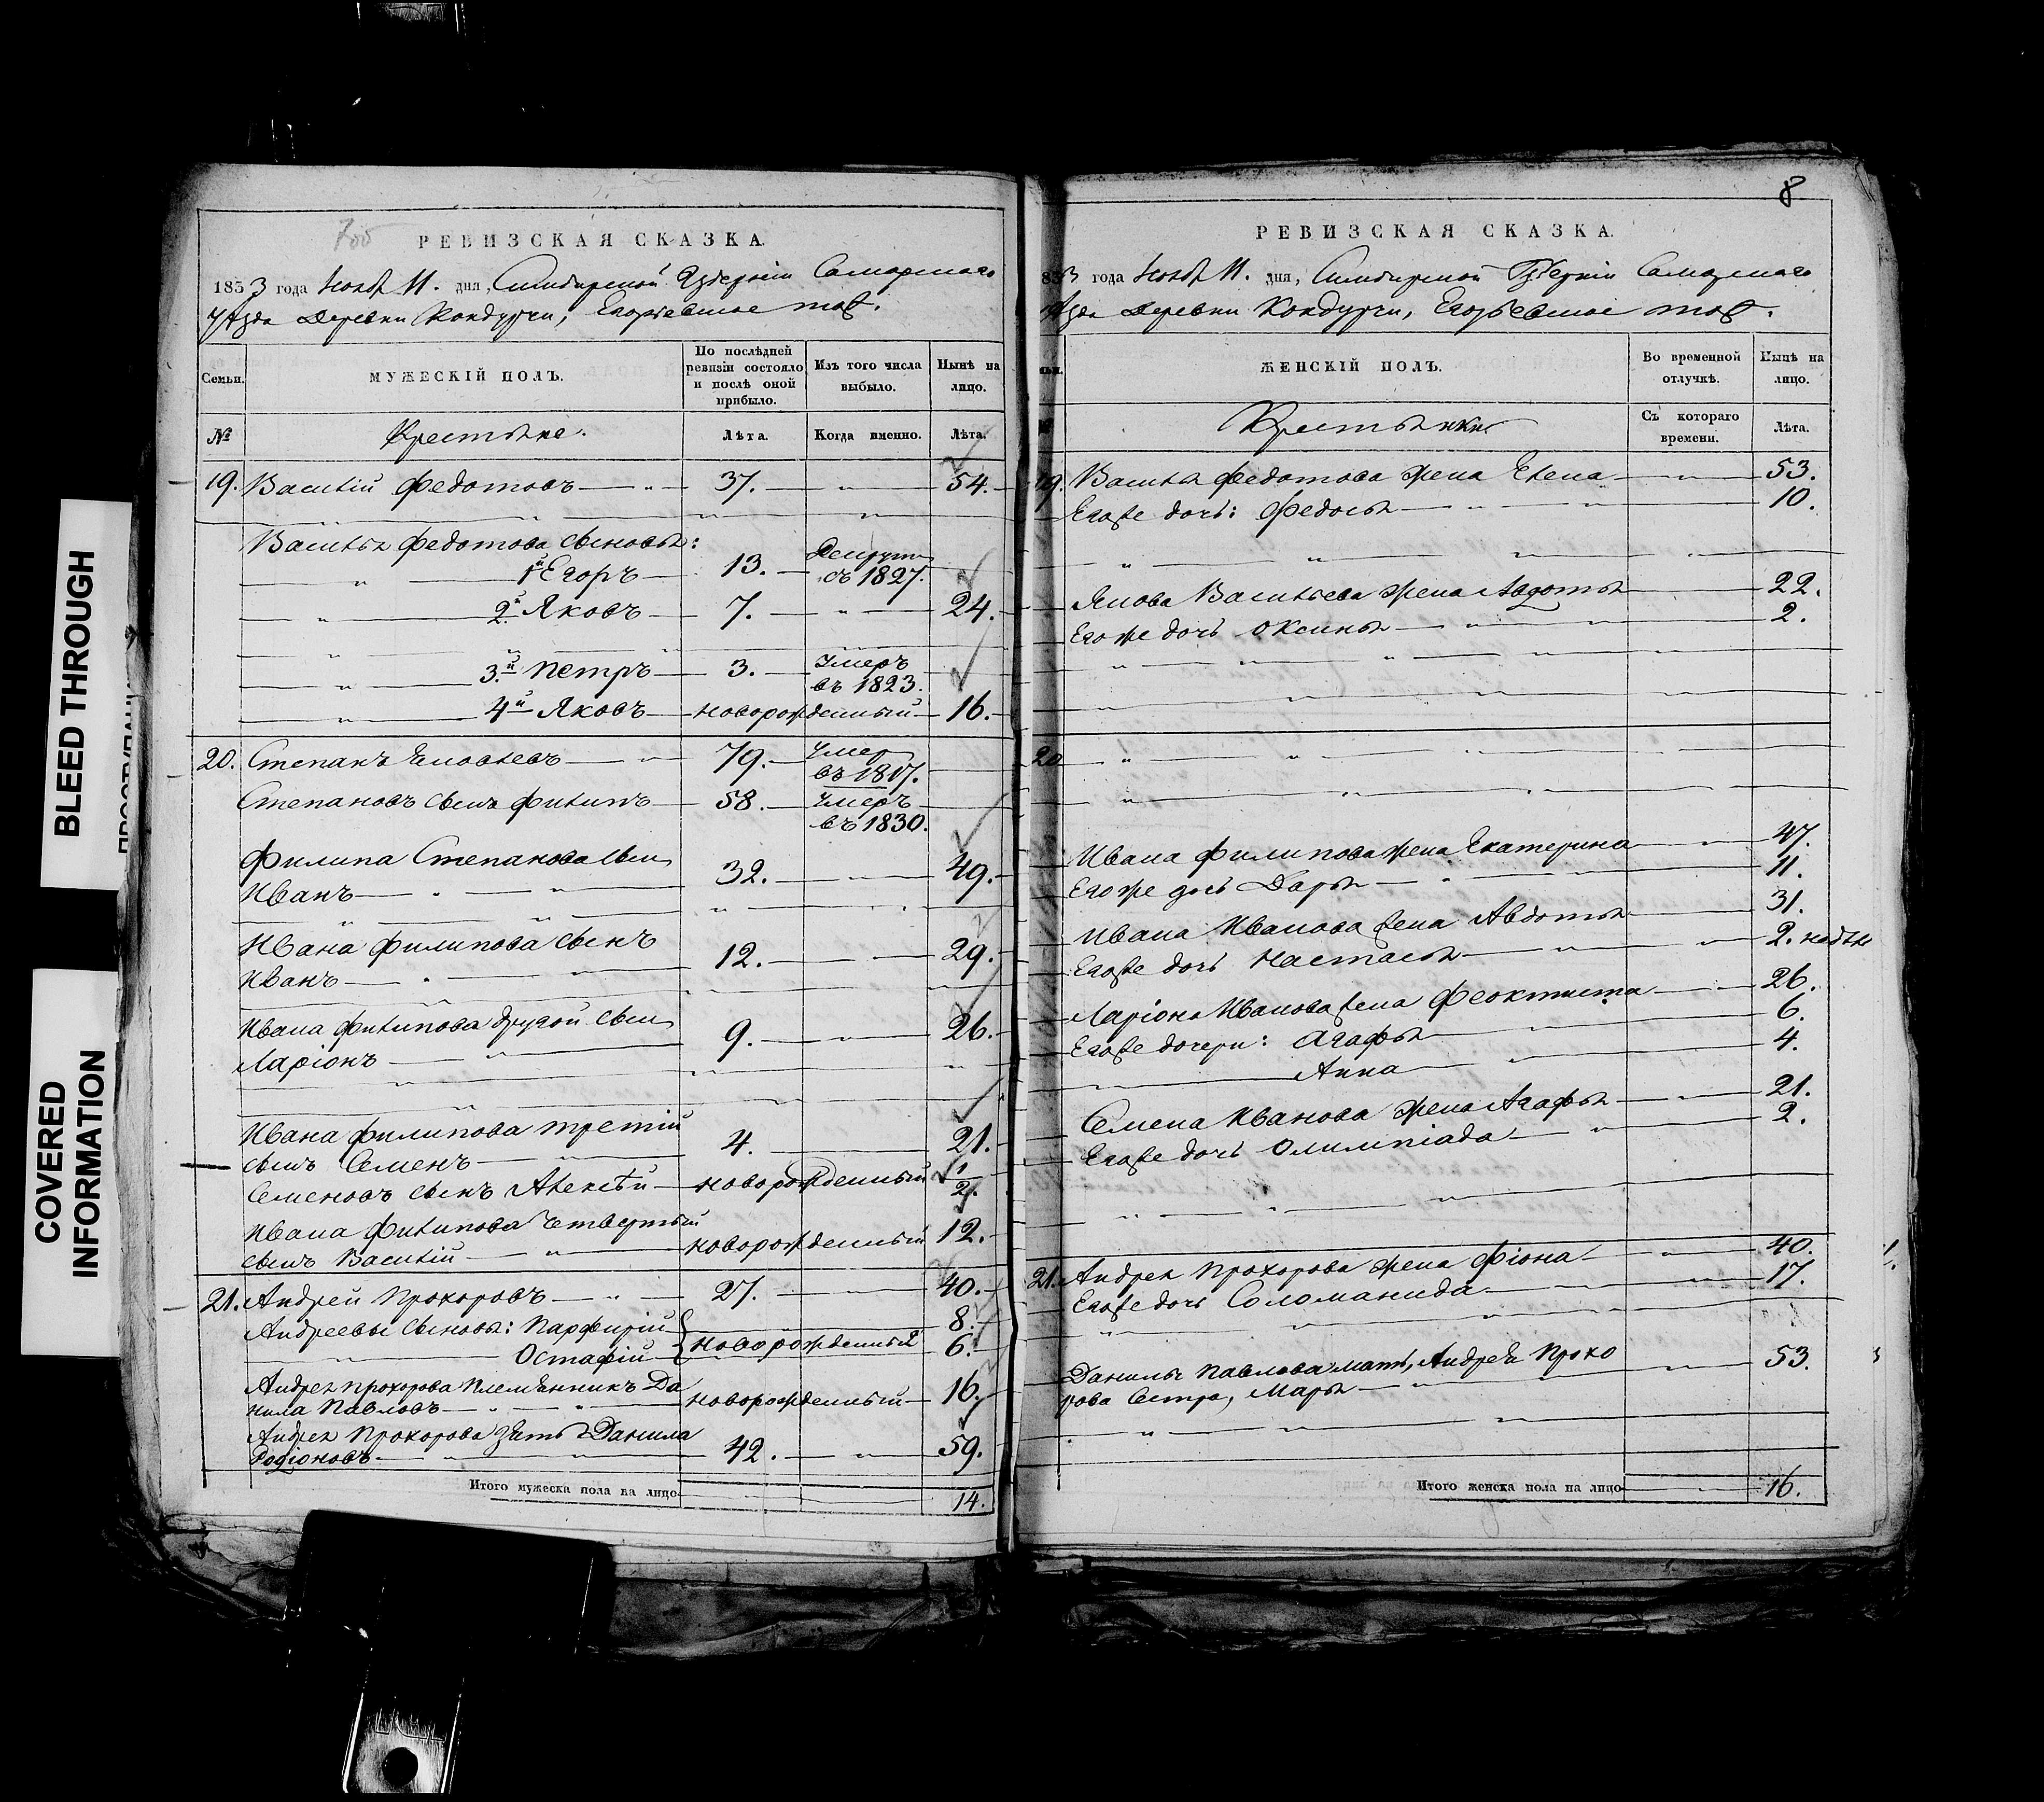 BLEED THROUGH
COVERED
INFORMATION
8
РЕВИЗСКАЯ СКАЗКА.
1853 года Нояб 11. дня, Симбирской Губерніи Самарскаго
уѣзда Деревни Кондурчи, Егорьевское тожъ.
Семьи.
МУЖЕСКІЙ ПОЛЪ.
По послѣдней ревизіи состояло и послѣ оной прибыло.
Изъ того числа выбыло.
Нынѣ на лицо.
№
Крестьяне.
Лѣта.
Когда именно.
Лѣта.
19. Василій Федотовъ 37. 54.
Василья Федотова сыновья:
1й Егоръ 13. въ 1827.
2й Яковъ 7. 24.
3й Петръ 3. Умеръ въ 1823.
4й Яковъ новорожденный 16.
20. Степанъ 79. Умер въ 1817.
Степановъ сынъ Филипъ 58. Умеръ въ 1830.
Филипа Степанова сын
Иванъ 32. 49.
Ивана Филипова сынъ
Иванъ 12. 29.
Ивана Филипова другой сын
Ларіонъ 9. 26.
Ивана Филипова третій
сынъ Семенъ 4. 21.
Семеновъ сынъ Алексѣй новорожденный 1/2.
Ивана Филипова четвертый
сынъ Василій новорожденный 12.
21. Андрей Прохоровъ 27. 40.
Андреевы сыновья: Парфирій 8.
Остафій новорожденный 6.
Андрея Прохорова племянникъ Да
нила Павловъ новорожденный 16.
Андрея Прохорова зять Данила
Родіоновъ 42. 59.
Итого мужеска пола на лицо 14.
РЕВИЗСКАЯ СКАЗКА.
853 года Нояб 11. дня, Симбирской Губерніи Самарскаго
уѣзда Деревни Кондурчи, Егорьевское тожъ.
ЖЕНСКІЙ ПОЛЪ.
Во временной отлучкѣ.
Нынѣ на лицо.
Крестьянки
Съ котораго времени.
Лѣта.
19. Василья Федотова жена Елена 53.
Егоже дочь: Федосья 10.
Якова Васильева жена Авдотья 22.
Егоже дочь Оксинья 2.
20
Ивана Филипова жена Екатерина 47.
Егоже дочь Дарья 11.
Ивана Иванова жена Авдотья 31.
Егоже дочь Настасья 2. недѣли
Ларіона Иванова жена Феоктиста 26.
Егоже дочери: Агафья 6.
Анна 4.
Семена Иванова жена Агафья 21.
Егоже дочь Олимпіада 2.
21. Андрея Прохорова жена Фіона 40.
Егоже дочь Соломанида 17.
Данилы Павлова мать, Андрея Прохо
рова Сестра, Марья 53.
Итого женска пола на лицо 16.